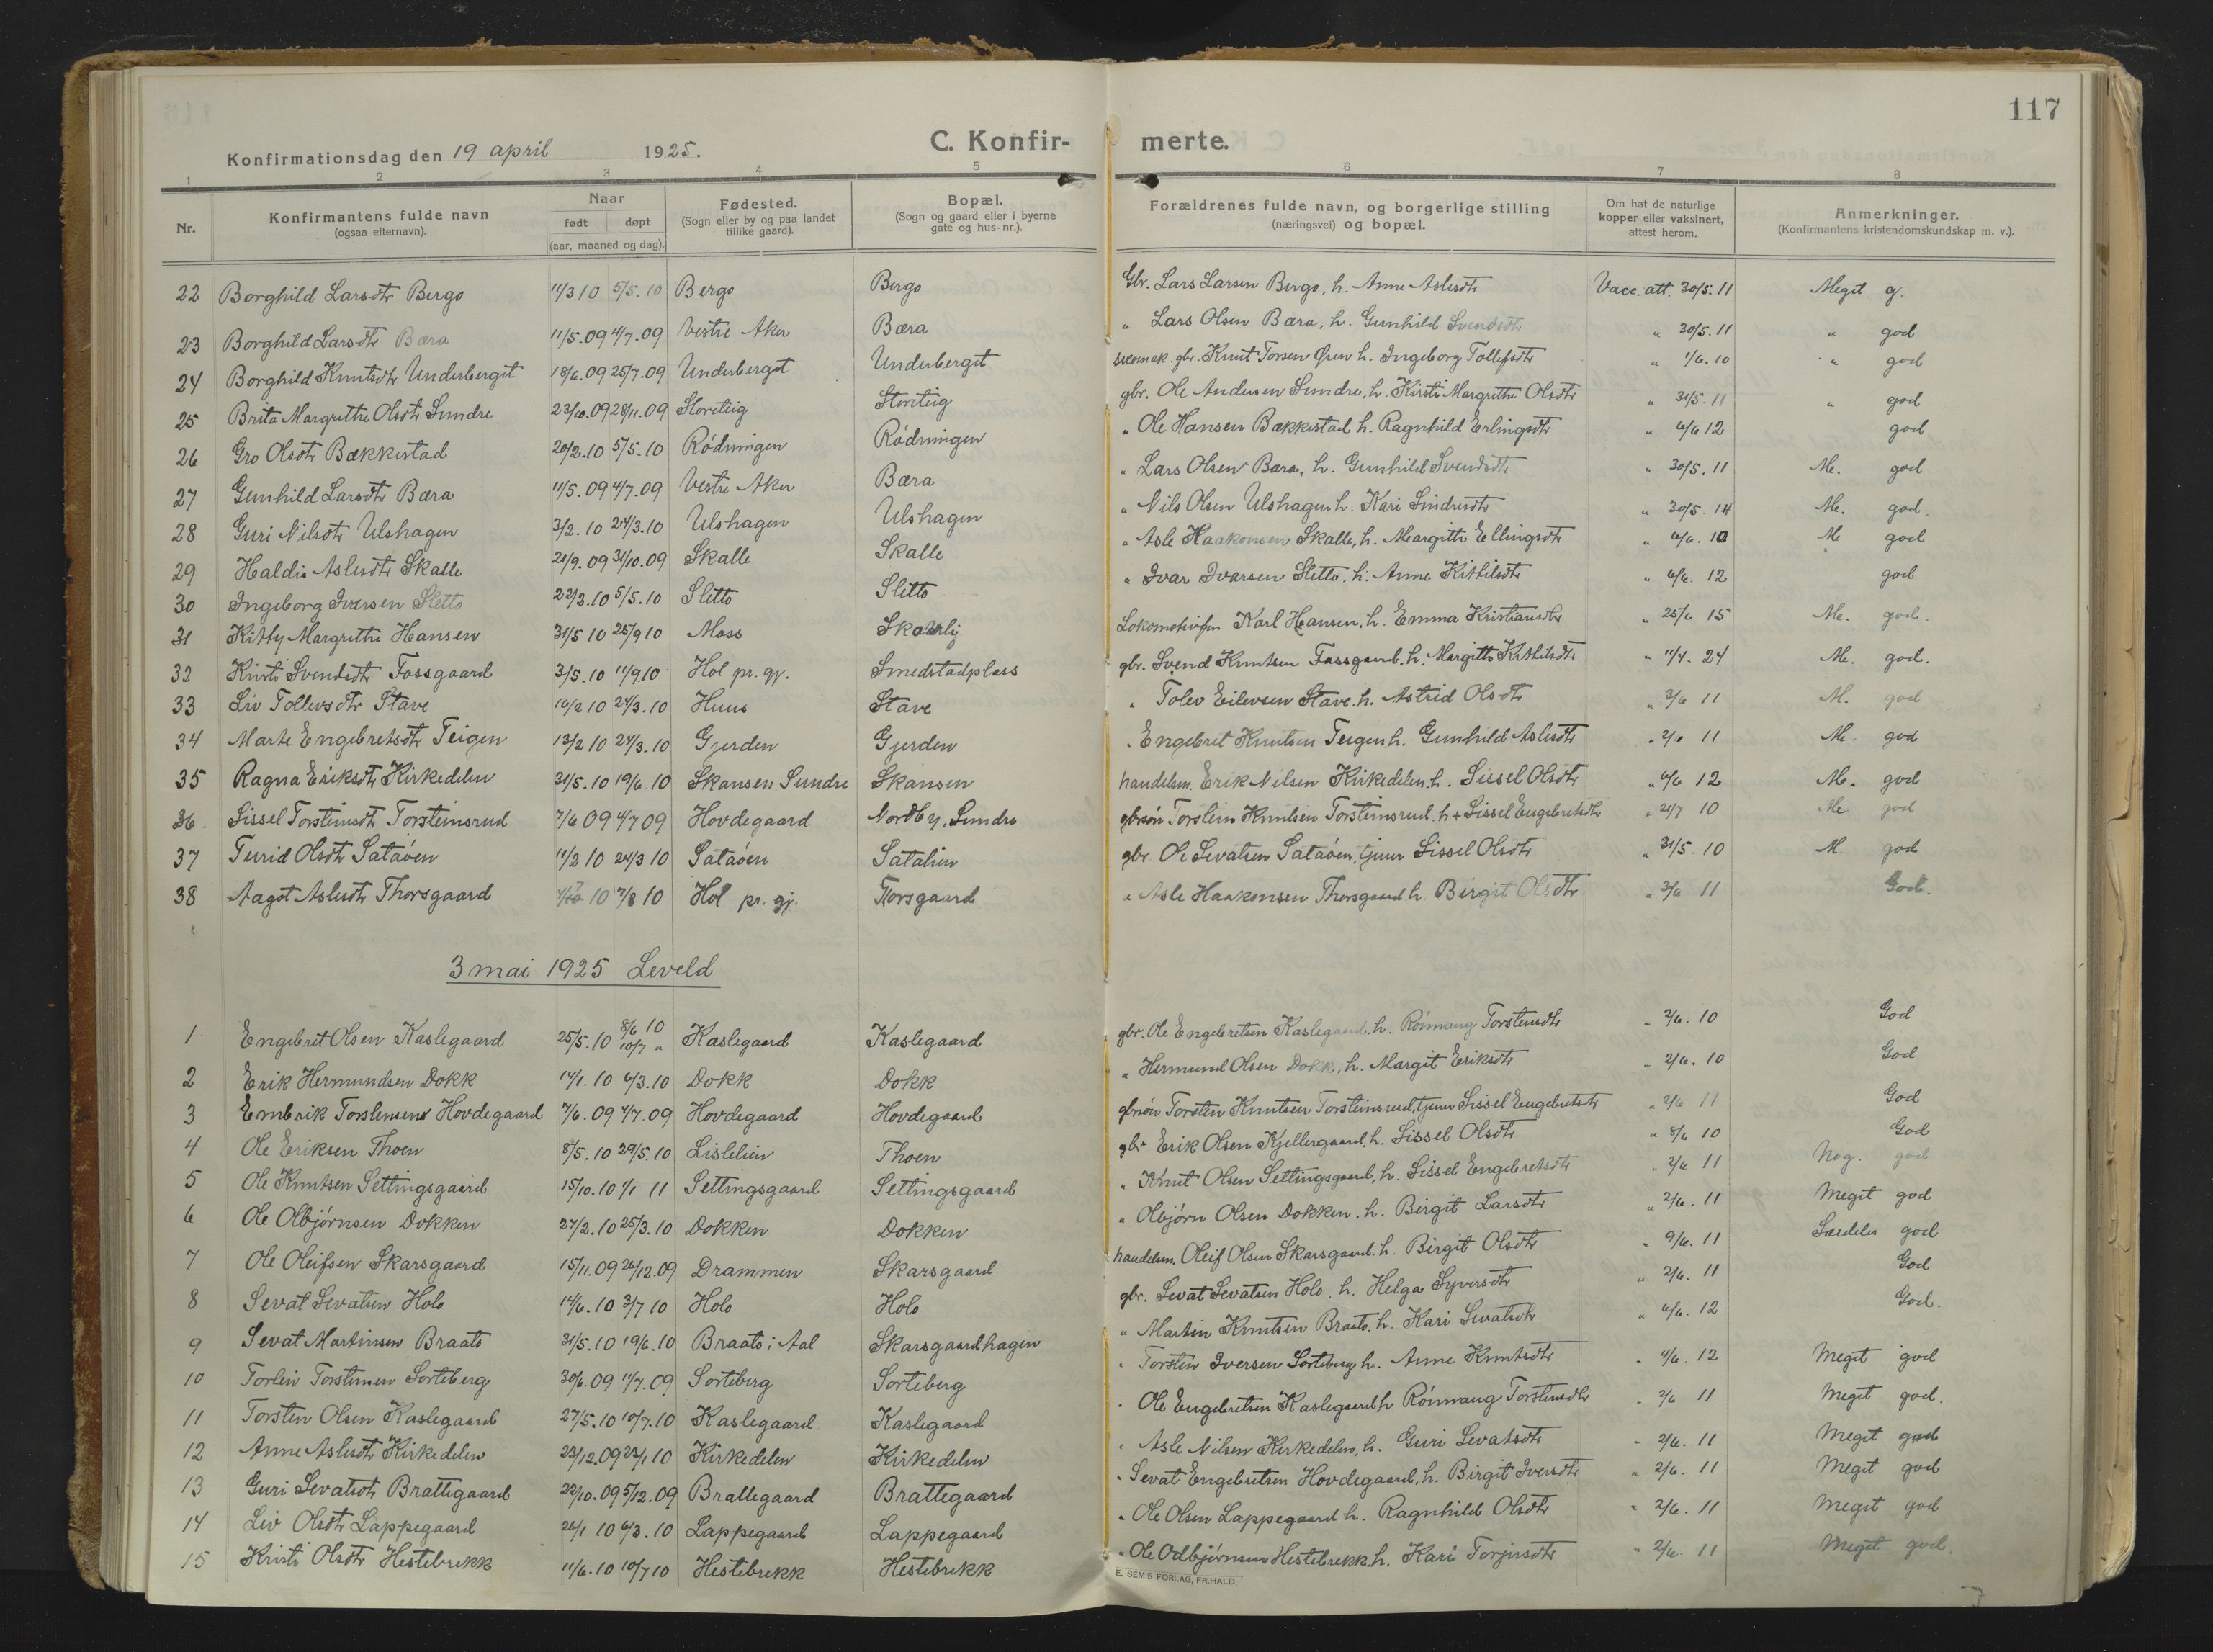 117
Konfirmationsdag den 19 april 1925. C. Konfir- merte.
1 2 3 4 5 6 7 8
Nr. Konfirmantens fulde navn (ogsaa efternavn). Naar født døpt (aar, maaned og dag). Fødested. (Sogn eller by og paa landet tillike gaard). Bopæl. (Sogn og gaard eller i byerne gate og hus-nr.). Forældrenes fulde navn, og borgerlige stilling (næringsvei) og bopæl. Om hat de naturlige kopper eller vaksinert, attest herom. Anmerkninger. (Konfirmantens kristendomskundskap m. v.).
22 Borghild Larsdtr Bergo 11/3 10 5/5.10 Bergo Bergo Gbr. Lars Larsen Bergo, h. Anne Aslesdtr Vacc. att. 30/5.11 Meget g.
23 Borghild Larsdtr Bæra 11/5.09 4/7.09 Vestre Aker Bæra " Lars Olsen Bæra, h. Gunhild Svendsdtr " 30/5.11 " god
24 Borghild Knutsdtr Underberget 18/6.09 25/7.09 Underberget Underberget gbr. Knut Torsen Øren h. Ingeborg Tollefsdtr " 1/6.10 " god
25 Brita Margrethe Olsdtr Sundre 23/10.09 28/11.09 Storeteig Storeteig gbr. Ole Andersen Sundre, h. Kirsti Margrethe Olsdtr " 31/5.11 " god
26 Gro Olsdtr Bækkestad 20/2.10 5/5.10 Rödningen Rödningen " Ole Hansen Bækkestad h. Ragnhild Erlingsdtr " 6/6 12 god
27 Gunhild Larsdtr Bæra 11/5.09 4/7.09 Vestre Aker Bæra " Lars Olsen Bæra, h. Gunhild Svendsdtr " 30/5.11 M. god
28 Guri Nilsdtr Ulshagen 3/2.10 24/3.10 Ulshagen Ulshagen " Nils Olsen Ulshagen h. Kari Sindresdtr " 30/5. M. god.
29 Haldis Aslesdtr Skalle 21/9.09 31/10.09 Skalle Skalle " Asle Haakonsen Skalle, h. Margitte Ellingsdtr " 6/6. 10 M god
30 Ingeborg Iversen Sletto 22/3.10 5/5.10 Sletto Sletto " Ivar Ivarsen Sletto. h. Anne Kittilsdtr " 6/6. 12 god
31 Kitty Margrethe Hansen 31/5 10 25/9 10 Moss Lokomotivfyr Karl Hansen, h. Emma Kristiansdtr " 25/6 15 M. god.
32 Kirsti Svendsdtr Fossgaard 3/5.10 11/9.10 Hol pr. gj. Smedstadplass gbr. Svend Knutsen Fossgaard, h. Margitte Kittilsdtr " 11/4. 24 M. god.
33 Liv Tollevsdtr Stave 16/2 10 24/3.10 Huus Stave " Tolev Eilevsen Stave. h. Astrid Olsdtr " 3/6 11 M. god
34 Marte Engebretsdtr Teigen 13/2 10 24/3.10 Gjerden Gjerden " Engebret Knutsen Teigen h. Gunhild Aslesdtr " 2/6 11 M. god
35 Ragna Eriksdtr Kirkedelen 31/5.10 19/6.10 Skansen Sundre Skansen handelsm. Erik Nilsen Kirkedelen. h. Sissel Olsdtr " 6/6 12 M. god
36 Sissel Torsteinsdtr Torsteinsrud 7/6 09 4/7 09 Hovdegaard Nordby, Sundre gbrsön Torstein Knutsen Torsteinsrud. h + Sissel Engebretsdtr " 21/7 10 M god
37 Turid Olsdtr Sataöen 11/2 10 24/3 10 Sataöen Satalien gbr. Ole Sevatsen Sataöen, tjener Sissel Olsdtr " 31/5.10 M. god
38 Aagot Aslesdtr Thorsgaard 10 7/8 10 Hol pr. gj. Torsgaard " Asle Haakonsen Thorsgaard h. Birgit Olsdtr " 3/6 11 God.
3 mai 1925 Leveld
1 Engebret Olsen Kaslegaard 25/5.10 8/6 10 10/7 " Kaslegaard Kaslegaard gbr. Ole Engebretsen Kaslegaard. h. Rönnaug Torsteinsdtr " 2/6. 10 God
2 Erik Hermundsen Dokk 14/1.10 6/3.10 Dokk Dokk " Hermund Olsen Dokk, h. Margit Eriksdtr " 2/6. 10 God
3 Embrik Torsteinsen Hovdegaard 7/6.09 4/7.09 Hovdegaard Hovdegaard gbrsön Torstein Knutsen Torsteinsrud, tjener Sissel Engebretsdtr " 2/6 11 God
4 Ole Eriksen Thoen 8/5.10 29/5.10 Lislelien Thoen gbr Erik Olsen Kjellergaard. h. Sissel Olsdtr " 8/6 10 God
5 Ole Knutsen Settingsgaard 15/10.10 1/1 11 Settingsgaard Settingsgaard " Knut Olsen Settingsgaard, h. Sissel Engebretsdtr " 2/6 11 Nog. god
6 Ole Olbjörnsen Dokken 27/2.10 25/3.10 Dokken Dokken " Olbjörn Olsen Dokken. h. Birgit Larsdtr " 2/6. 11 Meget god
7 Ole Oleifsen Skarsgaard 15/11.09 26/12.09 Drammen Skarsgaard handelsm. Oleif Olsen Skarsgaard. h. Birgit Olsdtr " 9/6. 11 Særdeles god
8 Sevat Sevatsen Holo 14/6.10 3/7 10 Holo Holo gbr. Sevat Sevatsen Holo. h. Helga Syversdtr " 2/6. 11 God
9 Sevat Martinsen Braato 31/5.10 19/6.10 Braato i Aal Skarsgaardhagen " Martin Knutsen Braato. h. Kari Sevatsdtr " 6/6. 12 God.
10 Torstein Sorteberg 30/6.09 11/7.09 Sorteberg Sorteberg " Torstein Iversen Sorteberg h. Anne Knutsdtr " 4/6. 12 Meget god
11 Torsten Olsen Kaslegaard 27/5.10 10/7.10 Kaslegaard Kaslegaard " Ole Engebretsen Kaslegaard h Rönnaug Torsteinsdtr " 2/6 11 Meget god.
12 Anne Aslesdtr Kirkedelen 23/12.09 22/1 10 Kirkedelen Kirkedelen " Asle Nilsen Kirkedelen, h. Guri Sevatsdtr " 2/6. 11 Meget god
13 Guri Sevatsdtr Brattegaard 22/10.09 5/12.09 Brattegaard Brattegaard " Sevat Engebretsen Hovdegaard, h. Birgit Iversdtr " 2/6. 11 Meget god
14 Liv Olsdtr Lappegaard 26/1 10 6/3.10 Lappegaard Lappegaard " Ole Olsen Lappegaard h. Ragnhild Olsdtr " 2/6. 11 Meget god
15 Kristi Olsdtr Hestebrekk 11/6.10 10/7 10 Hestebrekk Hestebrekk " Ole Odbjörnsen Hestebrekk. h. Kari Torjusdtr " 2/6. 11 Meget god.
E. SEM'S FORLAG, FR.HALD.